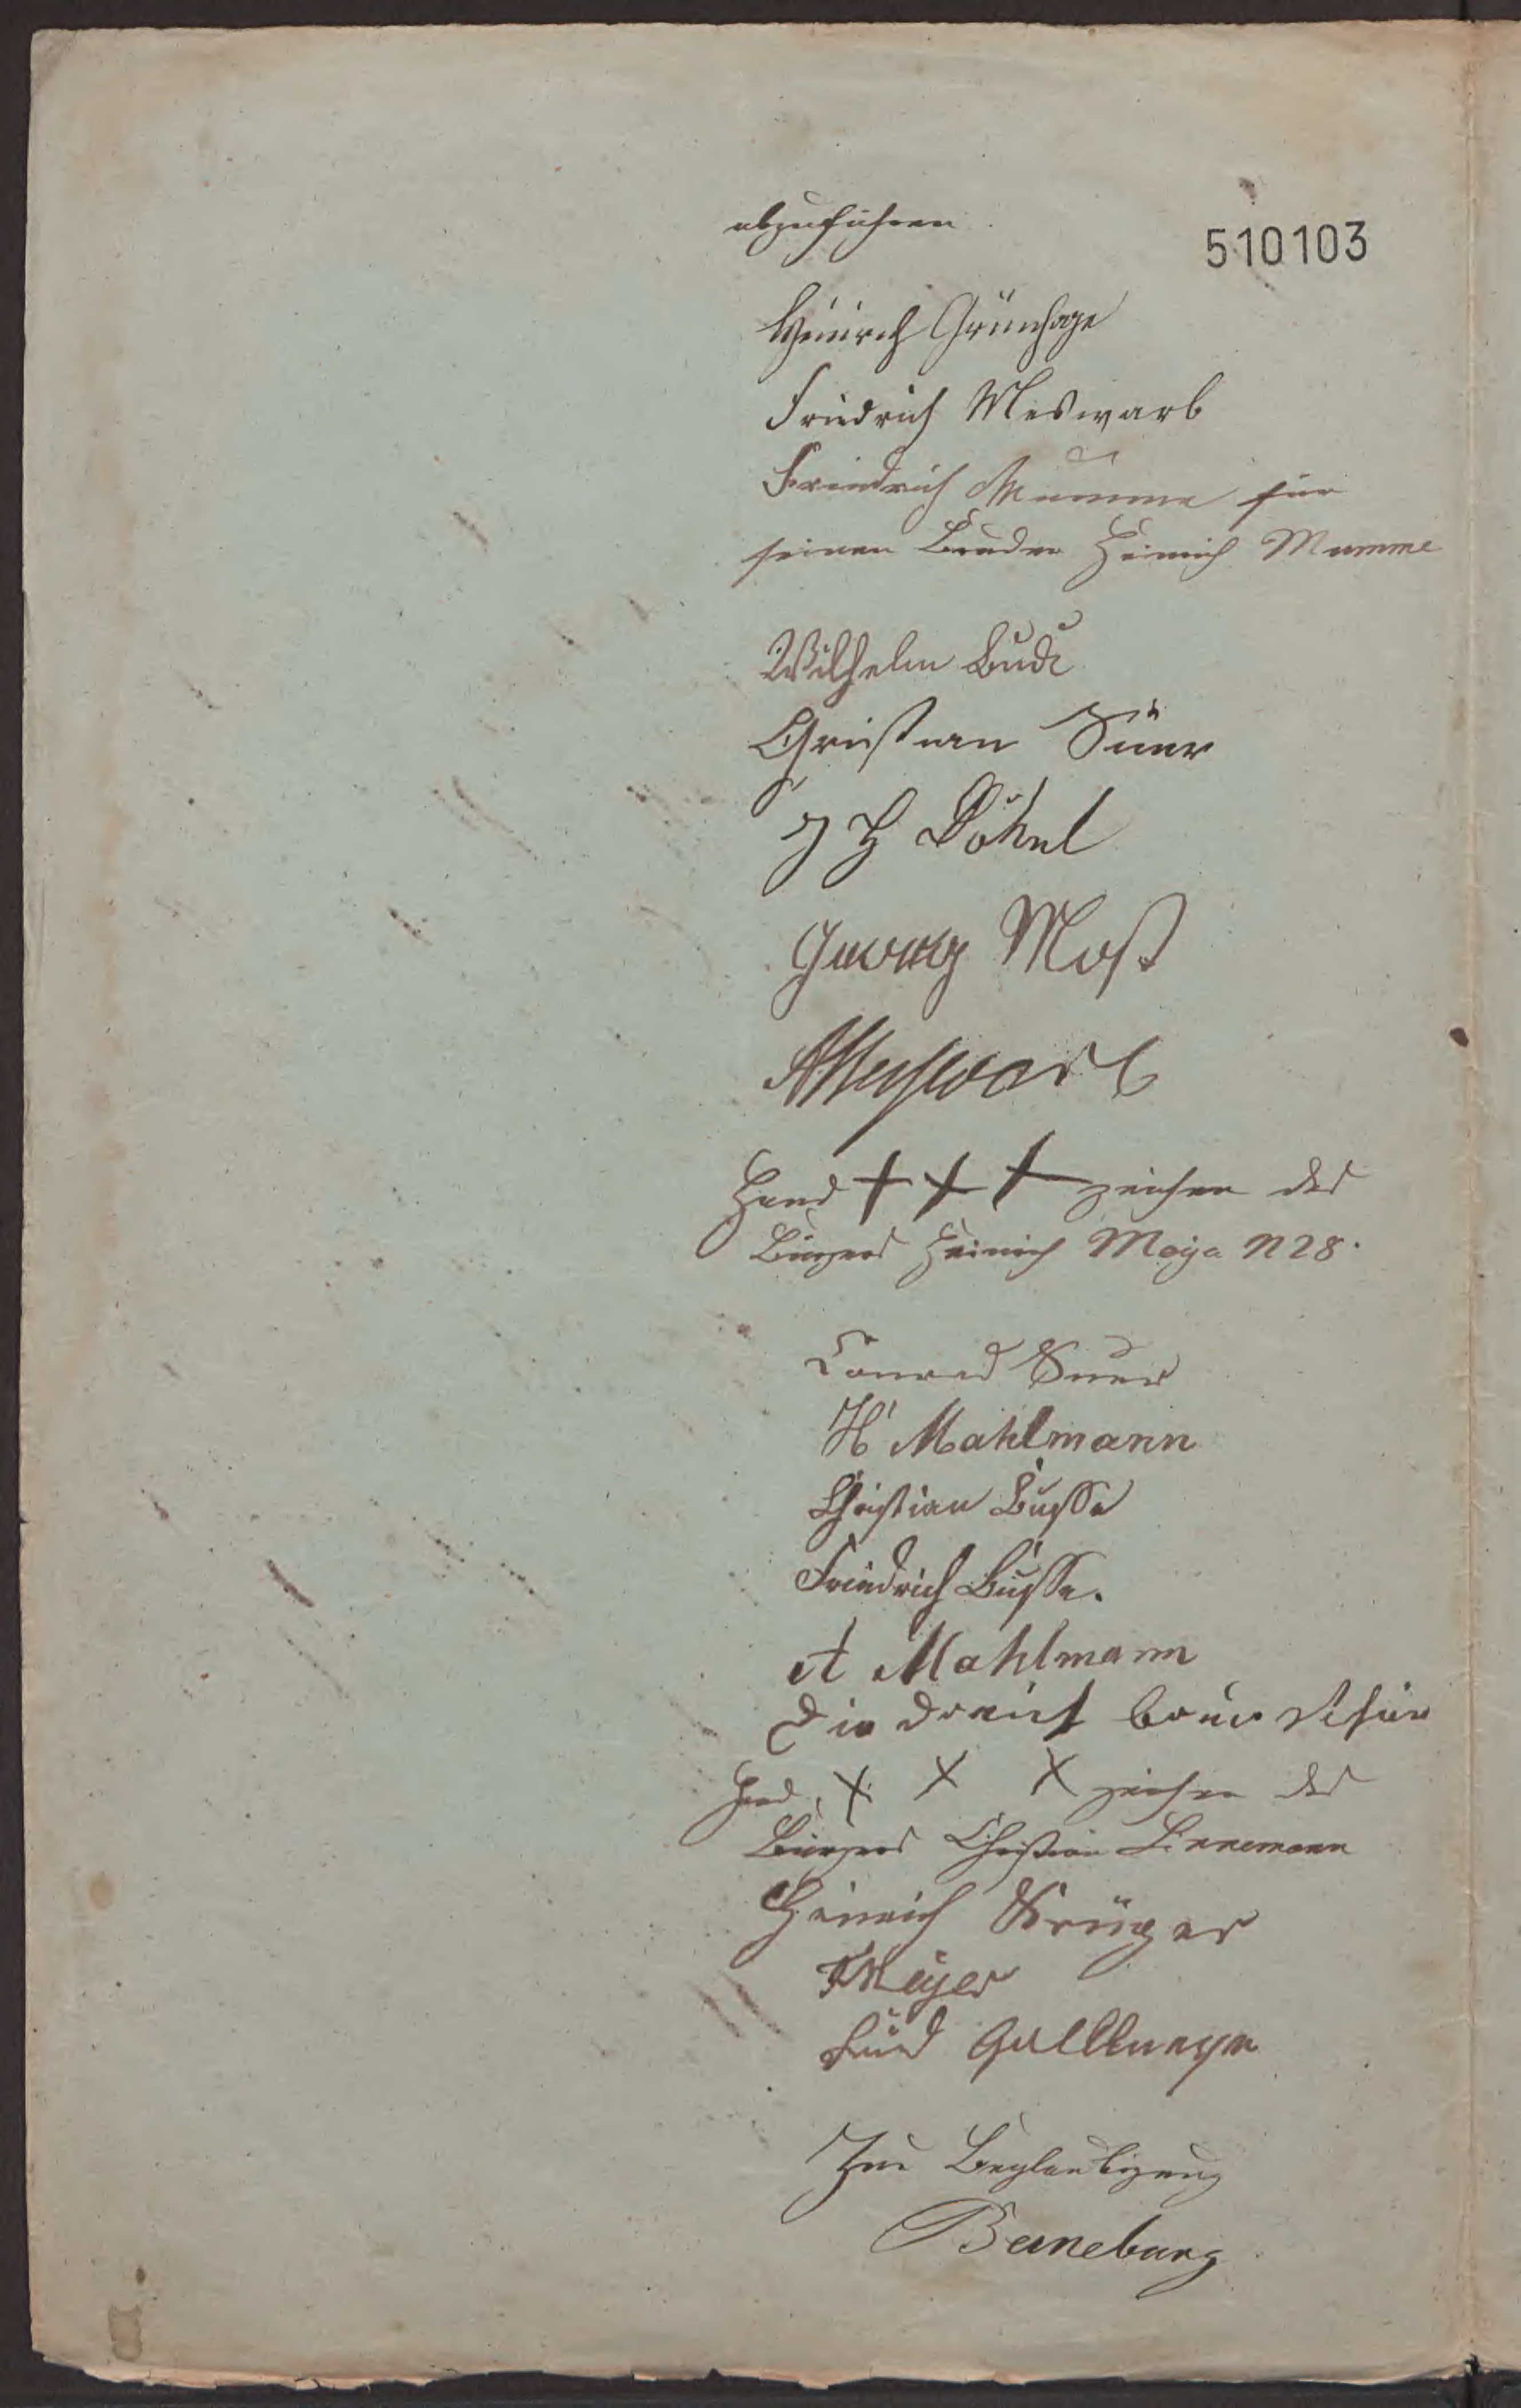 abzuführen.
510103
Heinrich Grünhage
Friedrich Meswarb
Friedrich Mumme für
seinen Bruder Heinrich Mumme
Wilhelm Bude
Christian Süer
J H Döhnel
Georg Most
A Meswarb
Hand +++ zeichen des
Bürgers Heinrich Meyer N 28.
Conrad Suer
H Mahlmann
Christian Busse
Friedrich Busse.
A Mahlmann
Hand X X X zeichen des
Bürgers Christian Linnemann
Heinrich Krüger
F Meyer
Lud Gallmeyer
Zur Beglaubigung
Berneburg